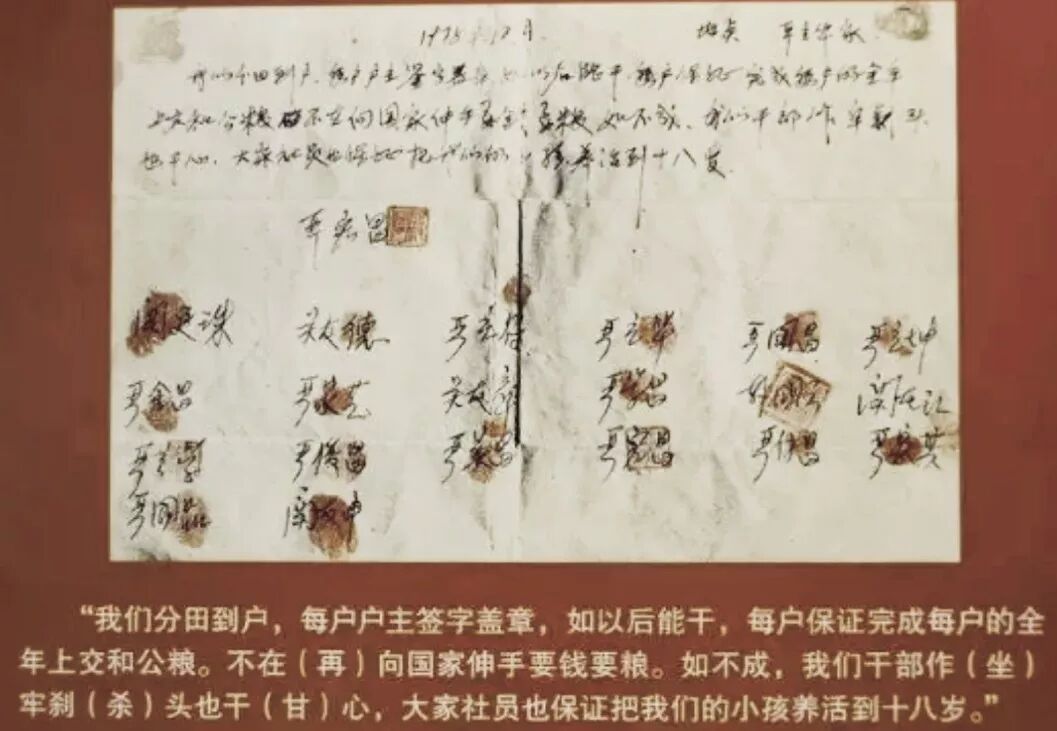 1978年12月. 地点 严立华家
我们分田到户 每户户主签字盖章 如以后能干 每户保证完成每户的全年
上交和公粮 不在向国家伸手要钱要粮 如不成 我们干部作牢刹头
也干心, 大家社员也保证把我们的小孩养活到十八岁
严宏昌
关廷珠 关友德 严立符 严立华 严国昌 严立坤
严金昌 严家芝 关友章 严学昌 韩国云 关友江
严立学 严俊昌 严美昌 严宏昌 严付昌 严家其
严国品 关友申
“我们分田到户,每户户主签字盖章,如以后能干,每户保证完成每户的全
年上交和公粮。不在(再)向国家伸手要钱要粮。如不成,我们干部作(坐)
牢刹(杀)头也干(甘)心,大家社员也保证把我们的小孩养活到十八岁。”